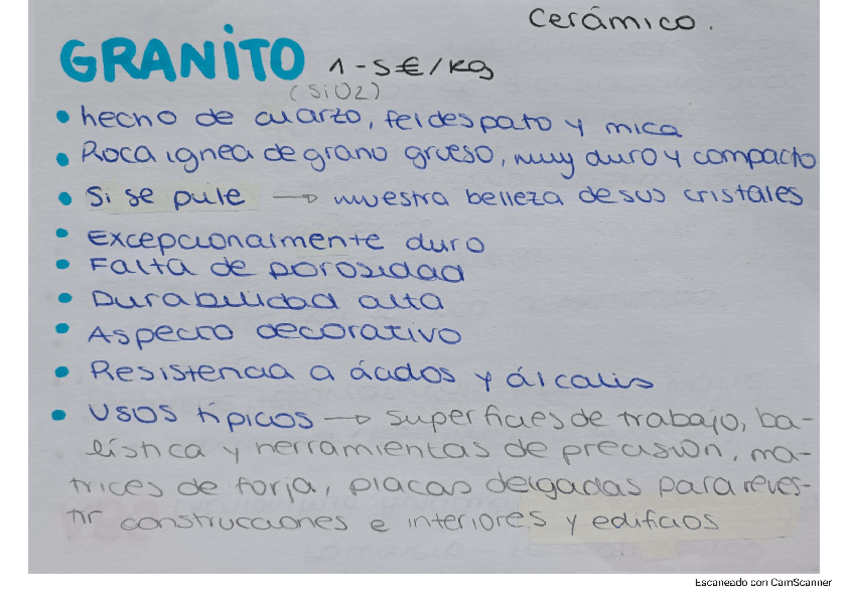 cerámico.
GRANITO 1-5€/kg
(SiO2)
• hecho de cuarzo, feldespato y mica
• Roca ignea de grano grueso, muy duro y compacto
• Si se pule → muestra belleza de sus cristales
• Excepcionalmente duro
• Falta de porosidad
• Durabilidad alta
• Aspecto decorativo
• Resistencia a ácidos y álcalis
• Usos típicos → superficies de trabajo, ba-
lística y herramientas de precisión, ma-
trices de forja, placas delgadas para reves-
tir construcciones e interiores y edificios
Escaneado con CamScanner